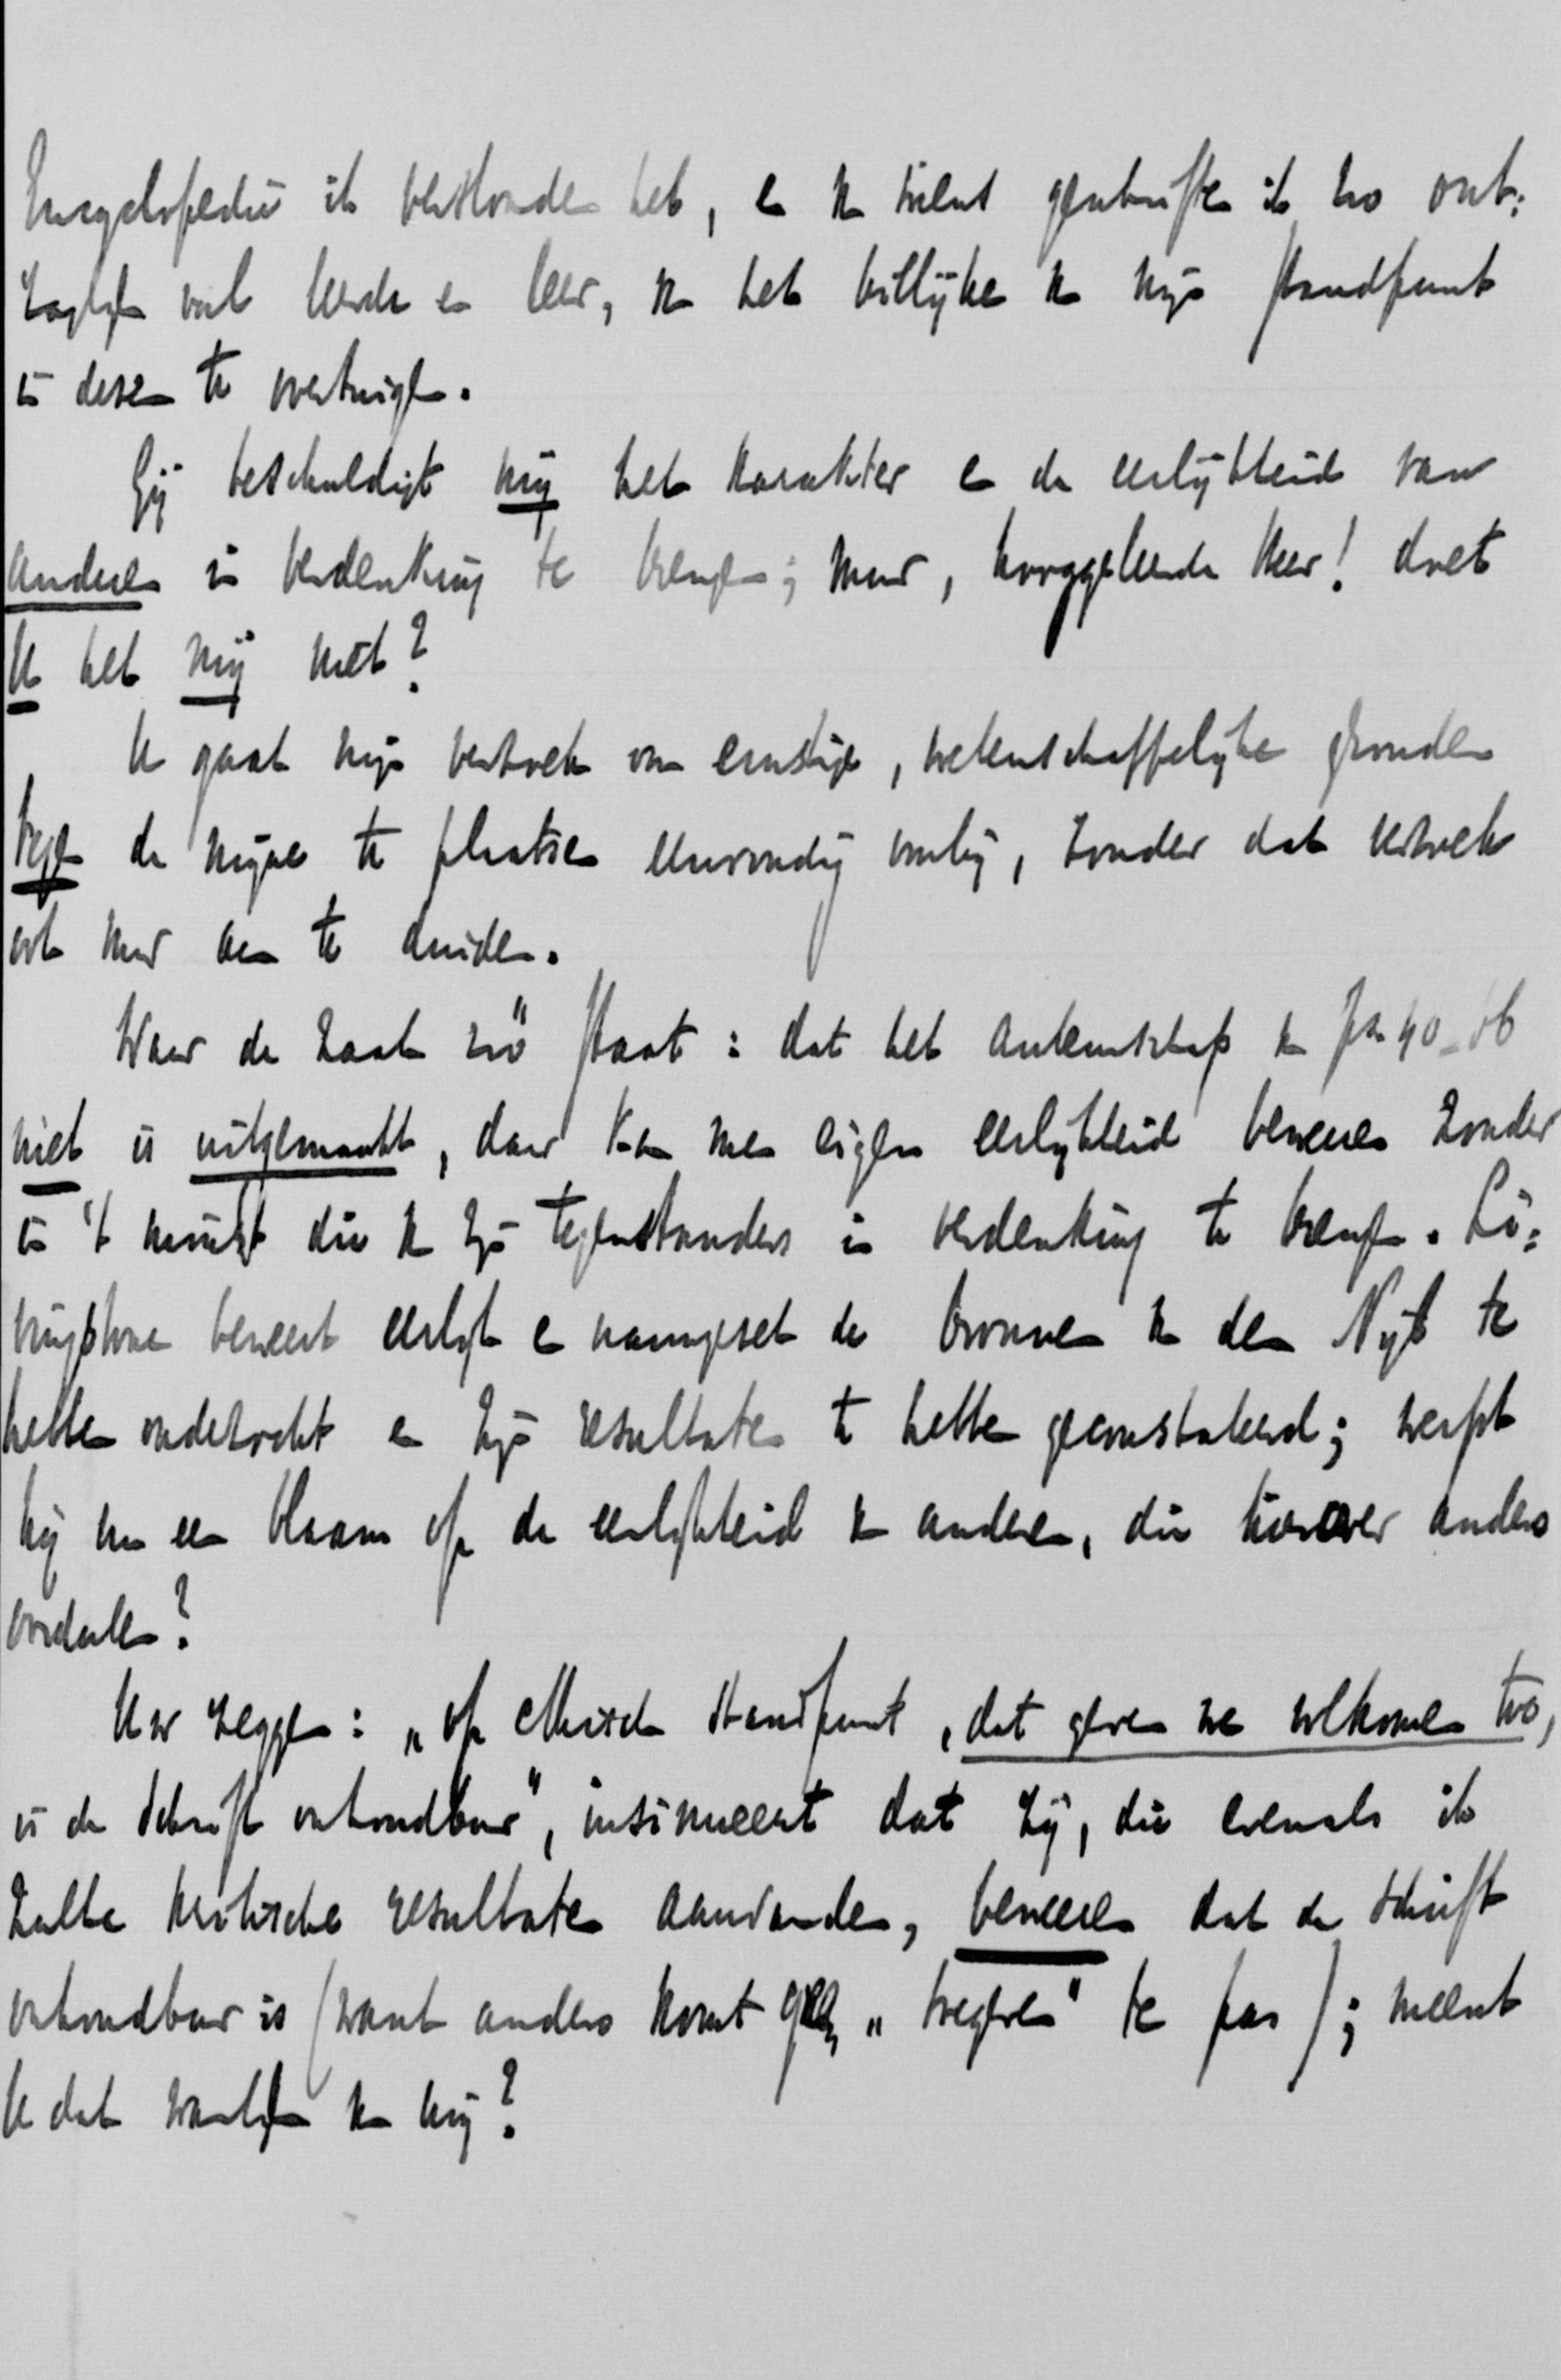 Encyclopedie ik verstonden heb, en v. wiens geschriften ik zoo ont:
zaglijk veel leerde en leer, v. het billijke v. mijn standpunt
in dezen te overtuigen.
Gij beschuldigt mij het karakter en de eerlijkheid van
anderen in verdenking te brengen; maar, hooggeleerde Heer! doet
U het mij niet?
U gaat mijn verzoek om ernstige, wetenschappelijke gronden
tegen de mijne te plaatsen eenvoudig voorbij, zonder dat verzoek
ook maar aan te duiden.
Waar de zaak zóó staat: dat het auteurschap v. Jes. 40-66
niet is uitgemaakt, daar kan men eigen eerlijkheid beweren zonder
in 't minst die v. zijn tegenstanders in verdenking te brengen. Li:
vingstone beweert eerlijk en nauwgezet de bronnen v. den Nijl te
hebben onderzocht en zijn resultaten te hebben geconstateerd; werpt
hij nu een blaam op de eerlijkheid v. anderen, die hierover anders
oordeelen?
Uw zeggen: „op ethisch standpunt, dat geven we volkomen toe,
is de Schrift onhoudbaar", insinueert dat zij, die evenals ik
zulke kritische resultaten aanvaarden, beweren dat de Schrift
onhoudbaar is (want anders komt geen „toegeven" te pas); meent
U dat waarlijk v. mij?